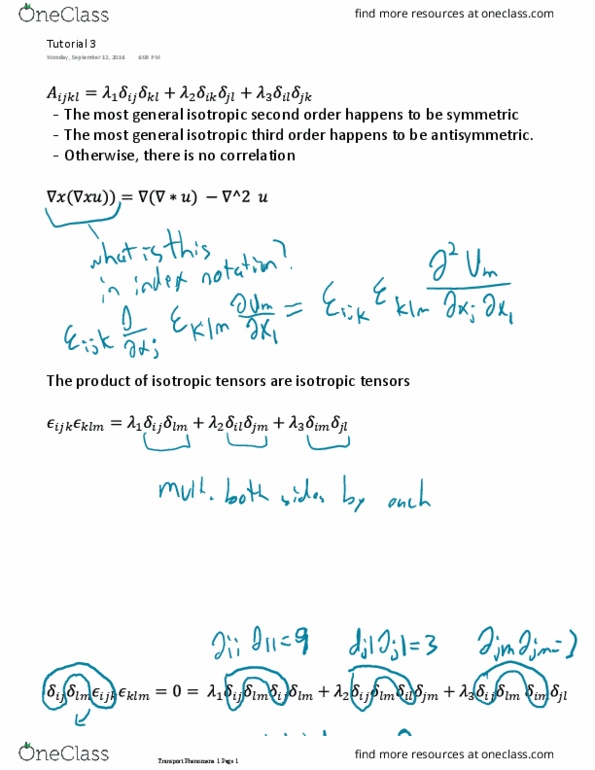 OneClass
find more resources at oneclass.com
Tutorial 3
Monday, September 12, 2016 6:09 PM
A_ijkl = λ₁δ_ijδ_kl + λ₂δ_ikδ_jl + λ₃δ_ilδ_jk
- The most general isotropic second order happens to be symmetric
- The most general isotropic third order happens to be antisymmetric.
- Otherwise, there is no correlation
∇x(∇xu)) = ∇(∇ * u) − ∇^2 u
what is this
in index notation?
ε_ijk ∂/∂x_j ε_klm ∂U_m/∂x_l = ε_ijk ε_klm ∂²U_m/∂x_j ∂x_l
The product of isotropic tensors are isotropic tensors
ϵ_ijkϵ_klm = λ₁δ_ijδ_lm + λ₂δ_ilδ_jm + λ₃δ_imδ_jl
mult. both sides by each
∂ii ∂ll=9 djl ∂jl=3 ∂jm ∂jm=3
δ_ijδ_lmϵ_ijkϵ_klm = 0 = λ₁δ_ijδ_lmδ_ijδ_lm + λ₂δ_ijδ_lmδ_ilδ_jm + λ₃δ_ijδ_lmδ_imδ_jl
OneClass
Transport Phenomena 1 Page 1
find more resources at oneclass.com